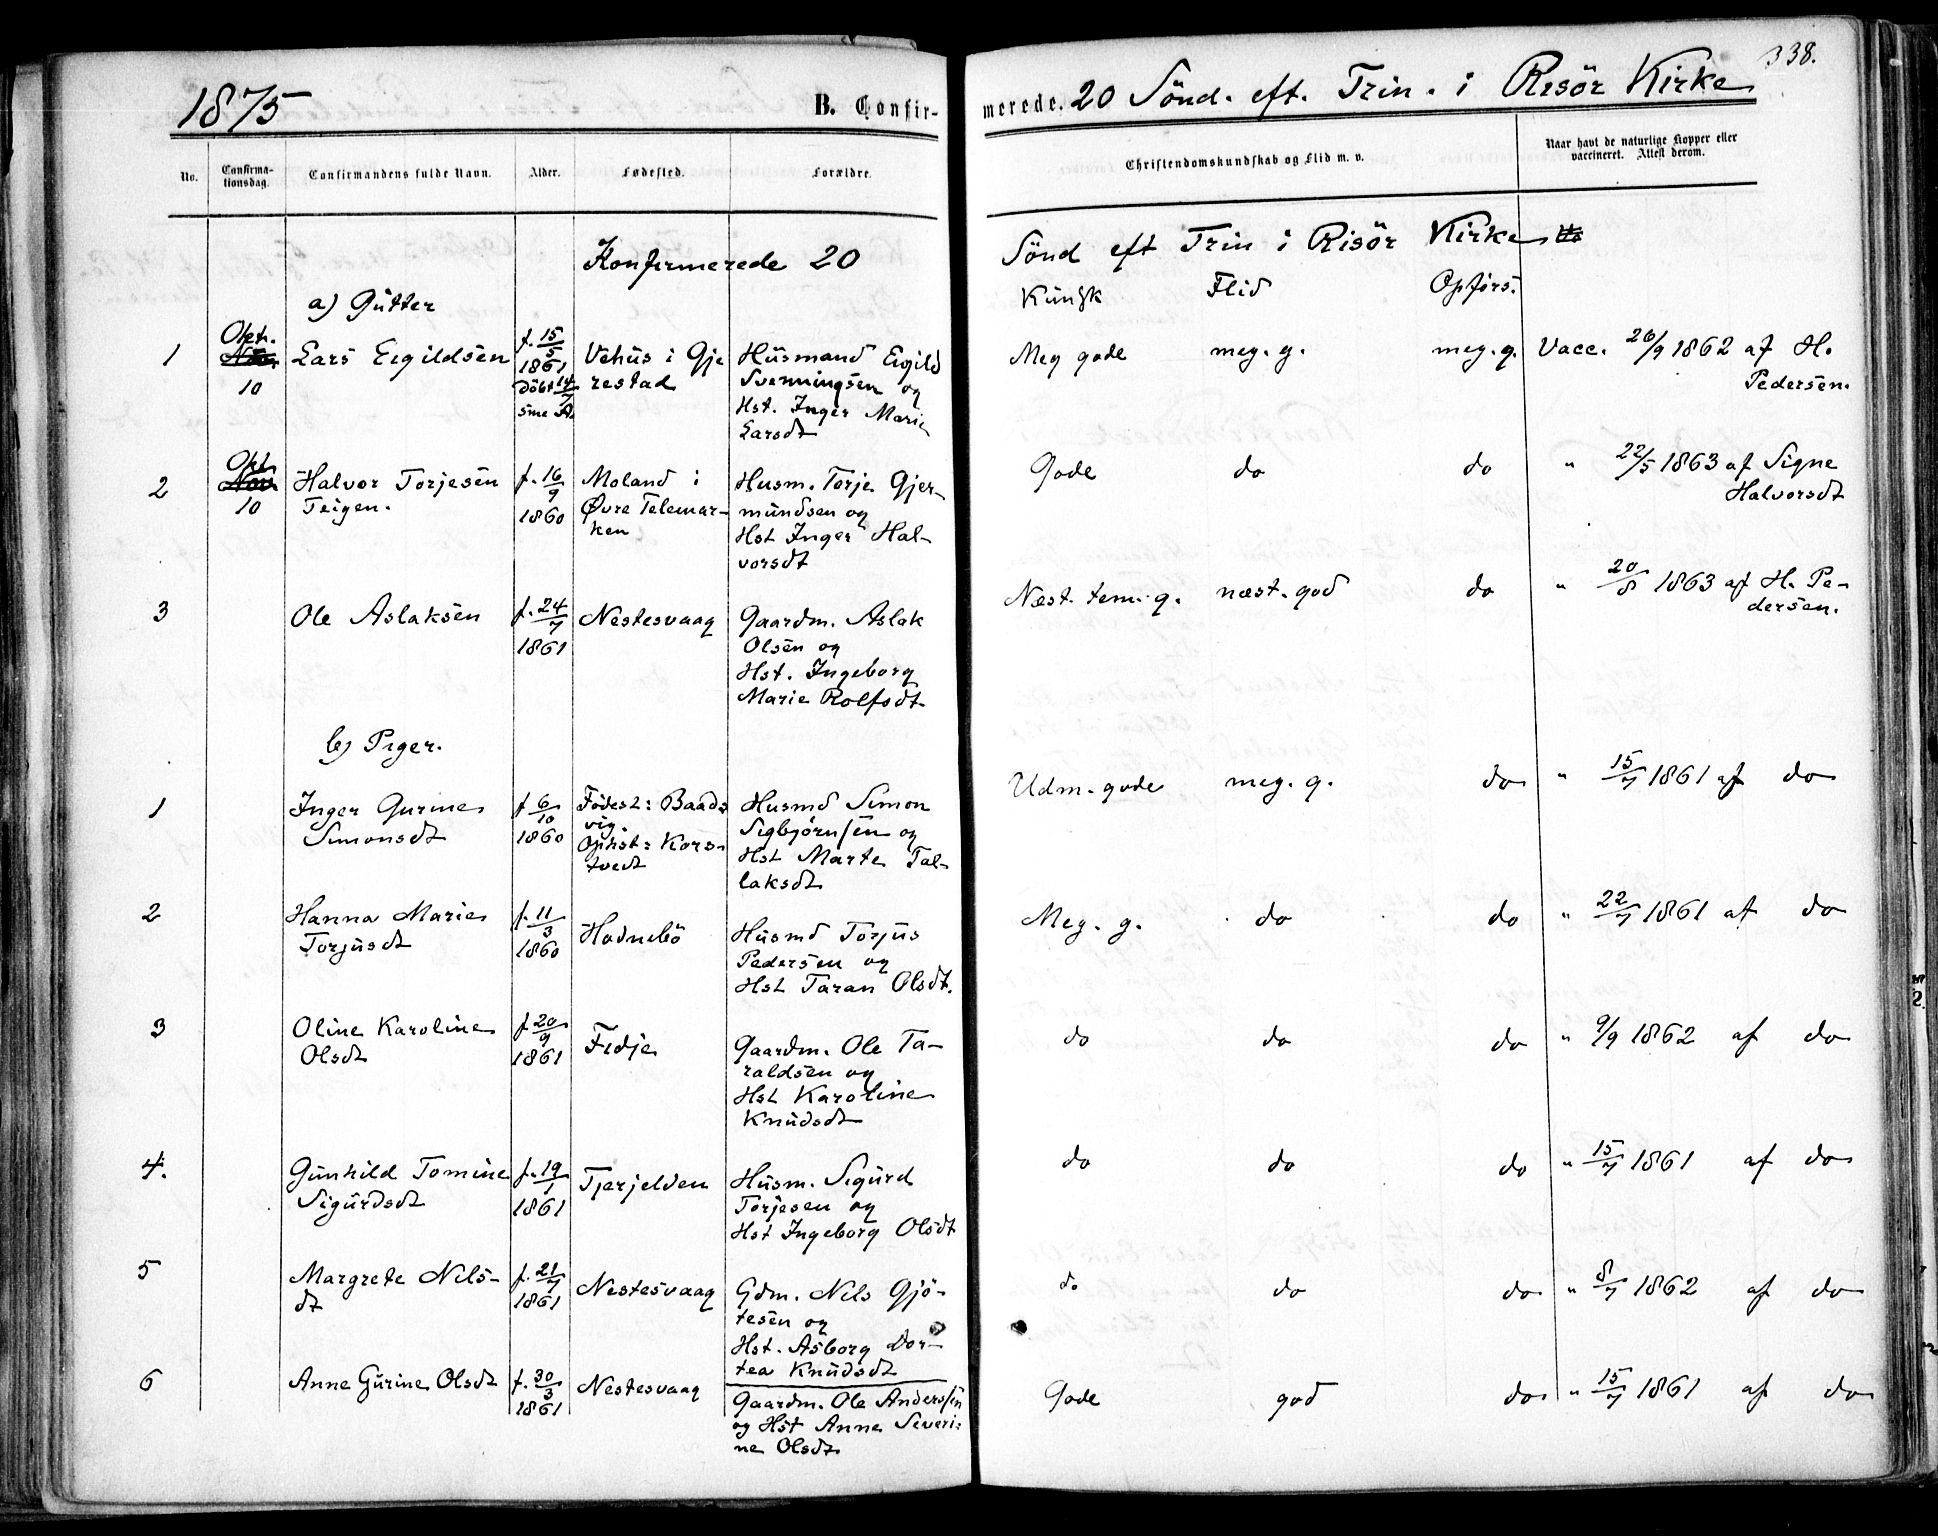 338.
1875 B. Confirmerede. 20 Sönd. eft. Trin. i Risör Kirke
No. Confirmationsdag. Confirmandens fulde Navn. Alder. Fødested. Forældre. Christendomskundskab og Flid m. v. Naar havt de naturlige Kopper eller vaccineret. Attest derom.
Konfirmerede 20 Sönd eft Trin i Risör Kirke
a) Gutter Kundsk Flid Opförs.
1 Okt. Nov. 10 Lars Eigildsen f. 15/5 1861 Döbt 14/7 sme A. Vehus i Gjerestad Husmand Eigild Svenningsen og Hst. Inger Marie Larsdt Meg gode meg. g. meg. g. Vacc. 26/9 1862 af H. Pedersen.
2 Okt. Nov. 10 Halvor Torjesen Teigen. f. 16/9 1860 Moland i Øvre Telemarken Husm. Torje Gjermundsen og Hst Inger Halvorsdt Gode do do " 22/5 1863 af Signe Halvorsdt
3 Ole Aslaksen f. 24/7 1861 Nestesvaag Gaardm. Aslak Olsen og Hst. Ingeborg Marie Rolfsdt Næst. tem. g. næst. god do " 20/8 1863 af H. Pedersen.
b) Piger.
1 Inger Gurine Simonsdt f 6/10 1860 Födest: Baadsvig. Ophst: Korstvedt Husmd Simon Sigbjörnsen og Hst Marte Tallaksdt Udm. gode meg. g. do " 15/7 1861 af do
2 Hanna Marie Torjusdt f. 11/3 1860 Hodnebö Husmd Torjus Pedersen og Hst Taran Olsdt. Meg. g. do do " 22/7 1861 af do
3 Oline Karoline Olsdt f 20/9 1861 Fidje Gaardm. Ole Taraldsen og Hst Karoline Knudsdt do do do " 9/9 1862 af do
4. Gunhild Tomine Sigurdsdt f. 19/1 1861 Tjerjelden Husm. Sigurd Torjesen og Hst Ingeborg Olsdt do do do " 15/7 1861 af do
5 Margrete Nilsdt f. 21/7 1861 Nestesvaag Gdm. Nils Gjötesen og Hst. Asborg Dortea Knudsdt do do do " 8/7 1862 af do
6 Anne Gurine Olsdt f. 30/3 1861 Nestesvaag Gaardm. Ole Anderssen og Hst Anne Severine Olsdt Gode god do " 15/7 1861 af do